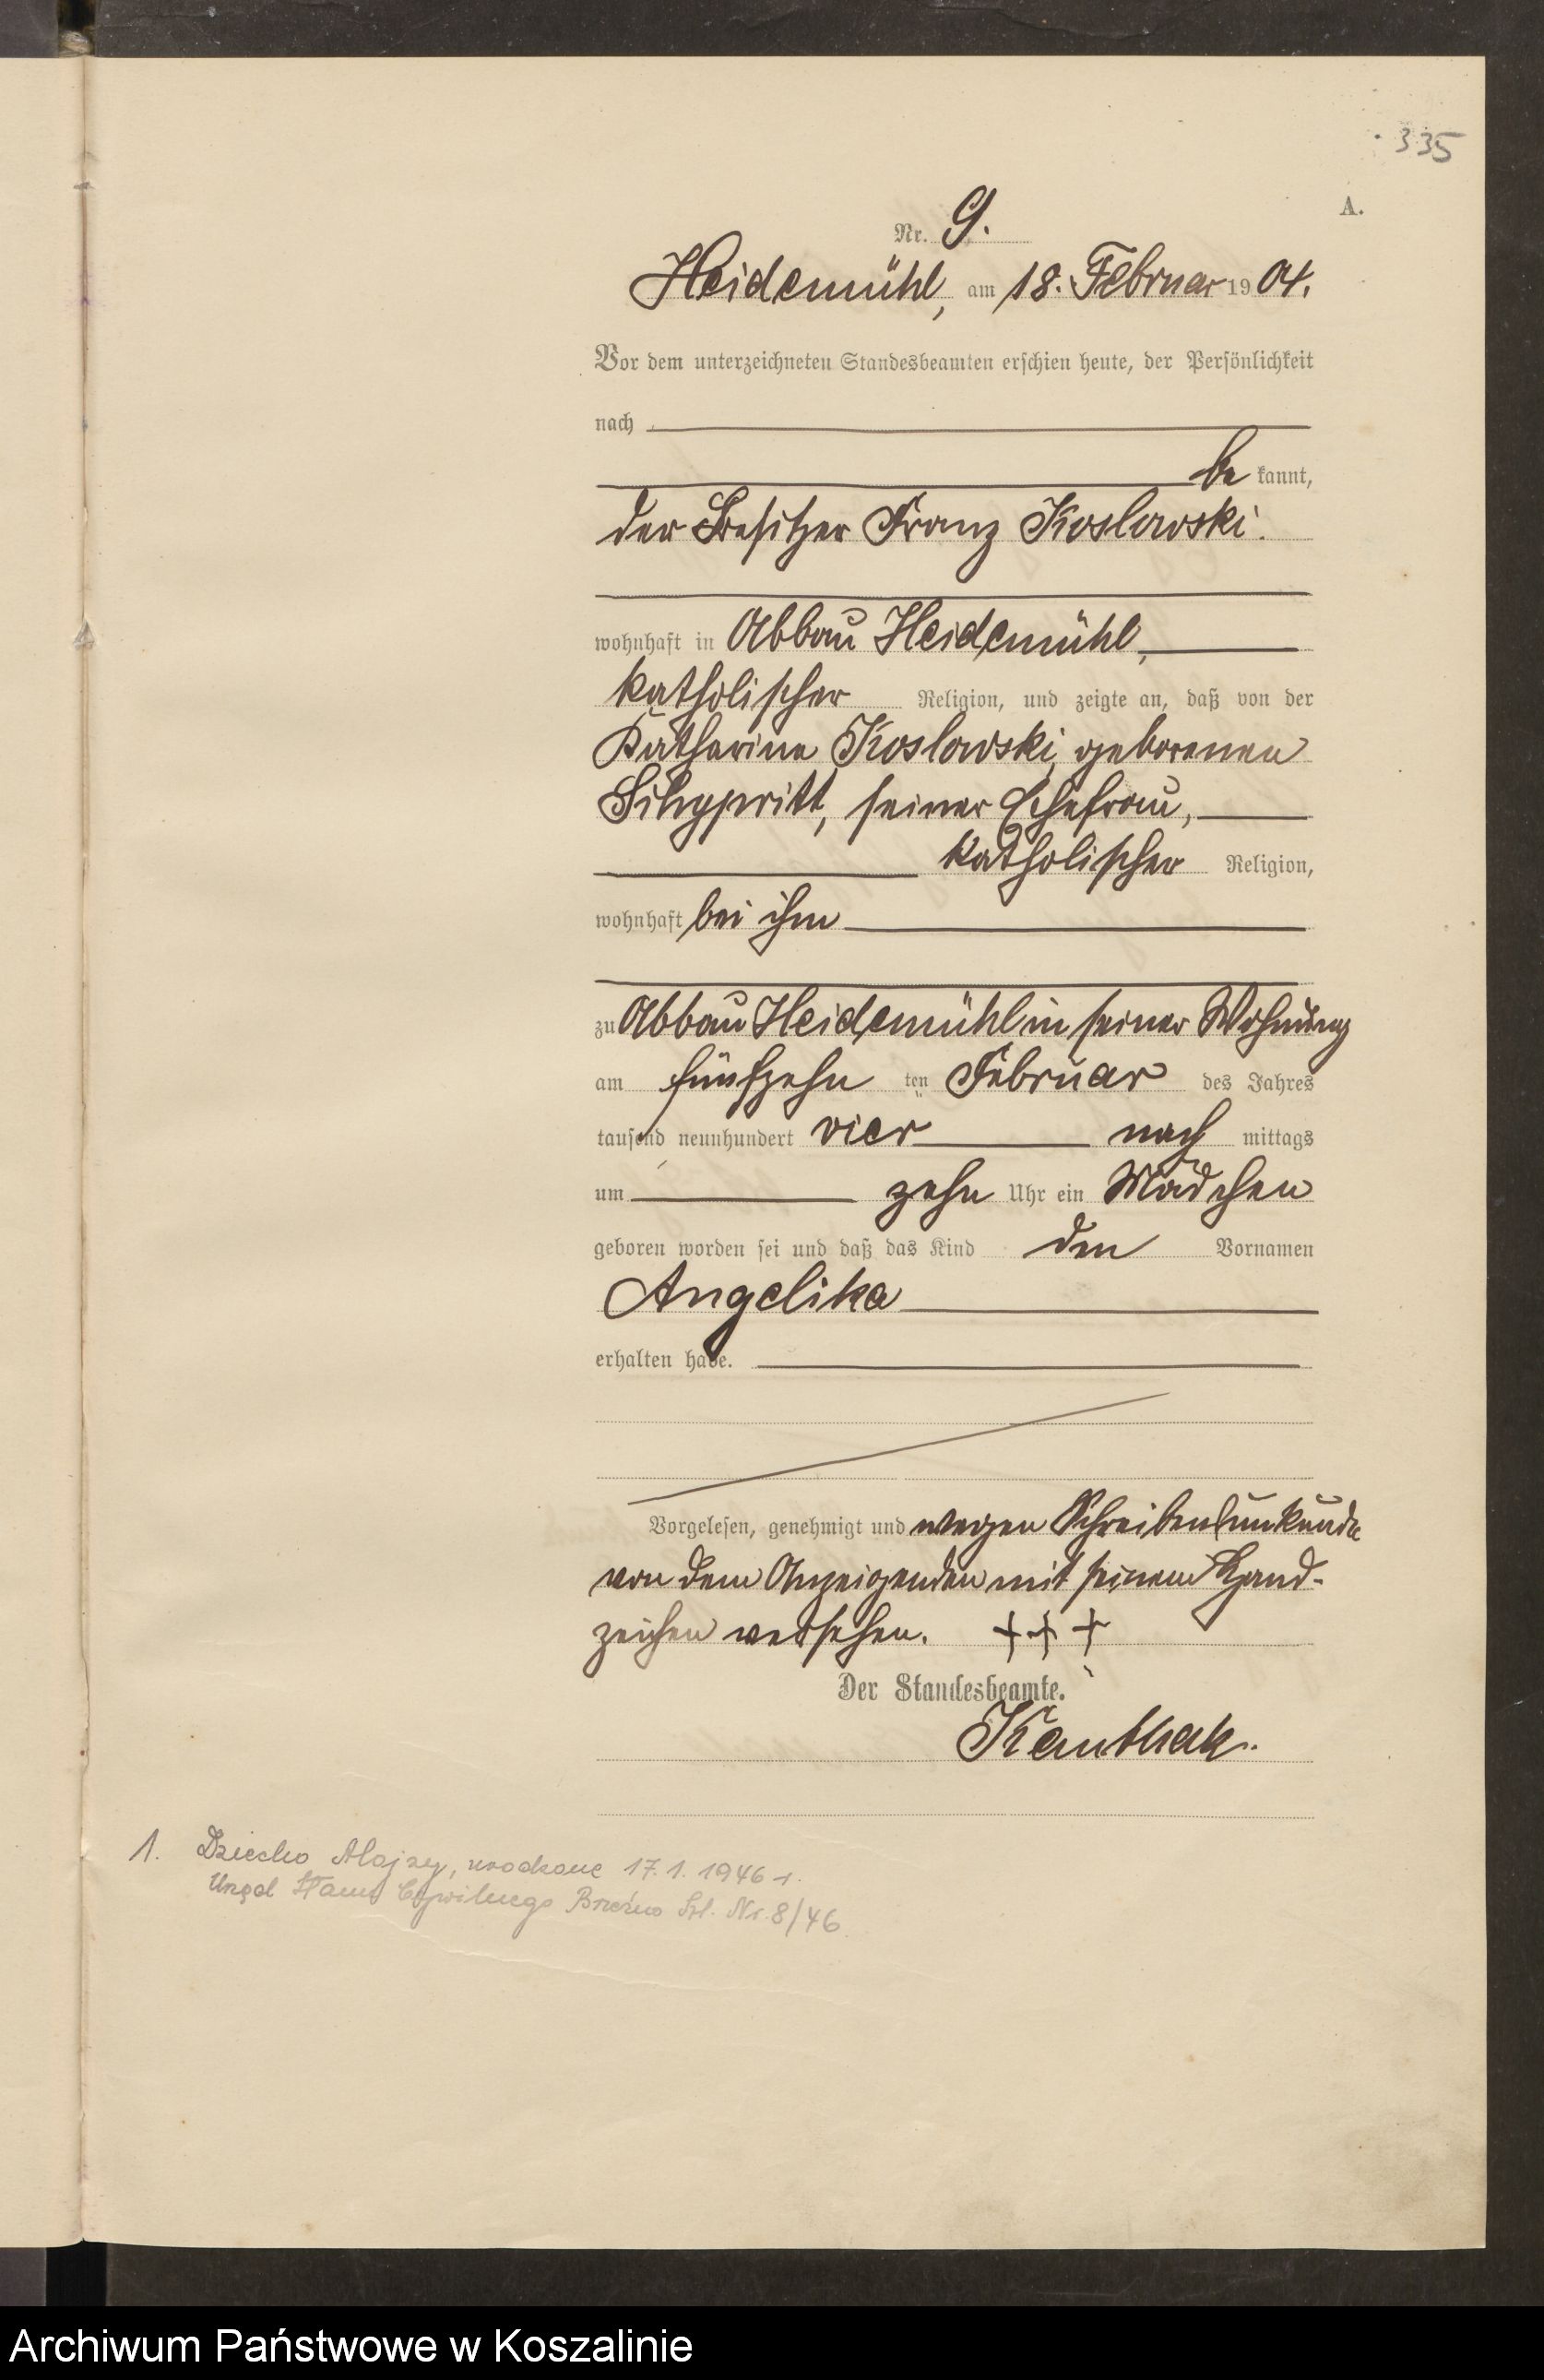 335
A.
Nr. 9.
Heidemühl, am 18. Februar 1904.
Vor dem unterzeichneten Standesbeamten erschien heute, der Persönlichkeit
nach
be kannt,
der Besitzer Franz Koslowski.
wohnhaft in Abbau Heidemühl,
katholischer Religion, und zeigte an, daß von der
Katharina Koslowski, geborenen
seiner Ehefrau,
katholischer Religion,
wohnhaft bei ihm
zu Abbau Heidemühl in seiner Wohnung
am fünfzehn ten Februar des Jahres
tausend neunhundert vier nach mittags
um zehn Uhr ein Mädchen
geboren worden sei und daß das Kind den Vornamen
Angelika
erhalten habe.
Vorgelesen, genehmigt und wegen Schreibensunkunde
von dem Anzeigenden mit seinem Hand-
zeichen versehen. + + +
Der Standesbeamte.
1. Dziecko Alojzy, urodzone 17.1.1946 r.
Urząd Stanu Cywilnego Brzeźno Szl. Nr. 8/46
Archiwum Państwowe w Koszalinie